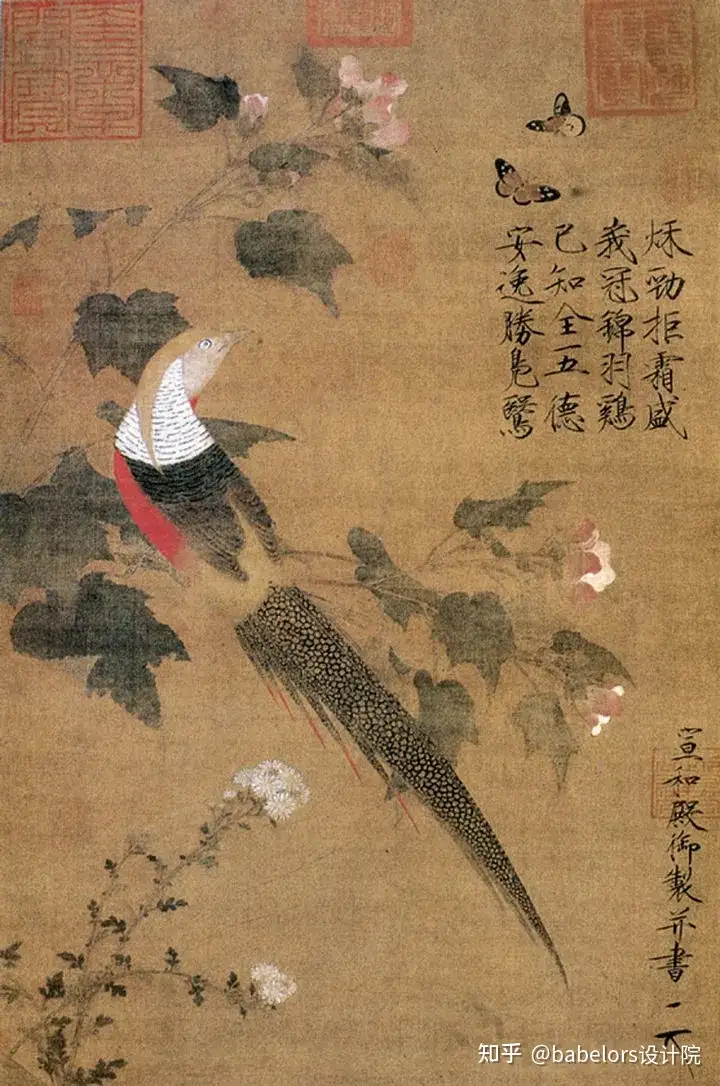 秋勁拒霜盛
峩冠錦羽鷄
已知全五德
安逸勝鳧鷖
宣和殿御製并書
知乎 @babelors设计院